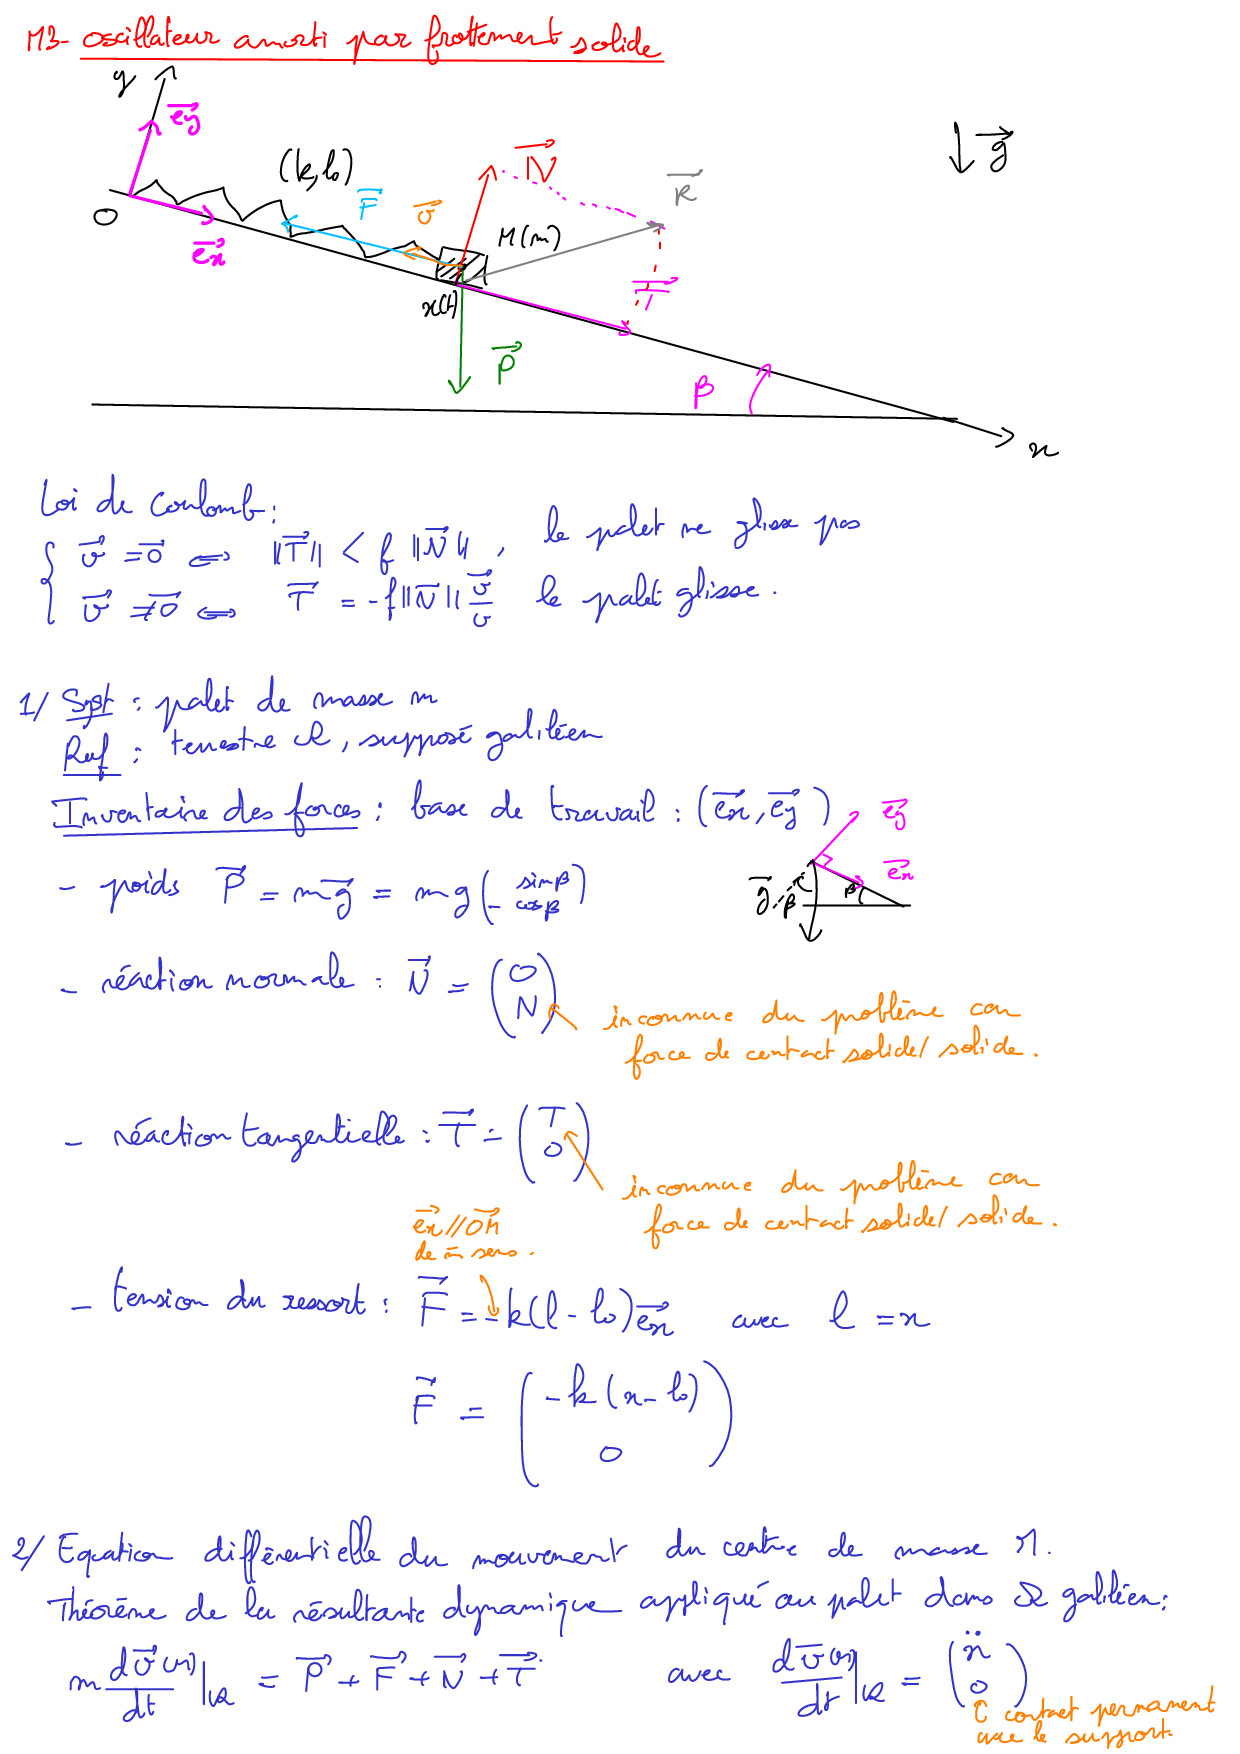 M3- oscillateur amorti par frottement solide
y
→ey
(k, l₀)
→N
→g
→R
→F
→v
O
→ex
M(m)
→T
x(t)
→P
β
x
Loi de Coulomb :
{ →v = →0 ⇔ ||→T|| < f ||→N||, le palet ne glisse pas
→v ≠ →0 ⇔ →T = -f||→N|| →v/v le palet glisse.
1/ Syst : palet de masse m
Ref : terrestre R, supposé galiléen
Inventaire des forces : base de travail : (→ex, →ey)
→ey
→ex
- poids →P = m→g = mg (sinβ
-cosβ)
→g
β
β
- réaction normale : →N = (0
N)
inconnue du problème car
force de contact solide/solide.
- réaction tangentielle : →T = (T
0)
inconnue du problème car
force de contact solide/solide.
→ex // →OM
de m̄ sens.
- tension du ressort : →F = -k(l - l₀)→ex avec l = x
→F = (-k(x - l₀)
0)
2/ Equation différentielle du mouvement du centre de masse M.
Théorème de la résultante dynamique appliqué au palet dans R galiléen :
m d→v(M)/dt|R = →P + →F + →N + →T avec d→v(M)/dt|R = (ẍ
0)
contact permanent
avec le support.